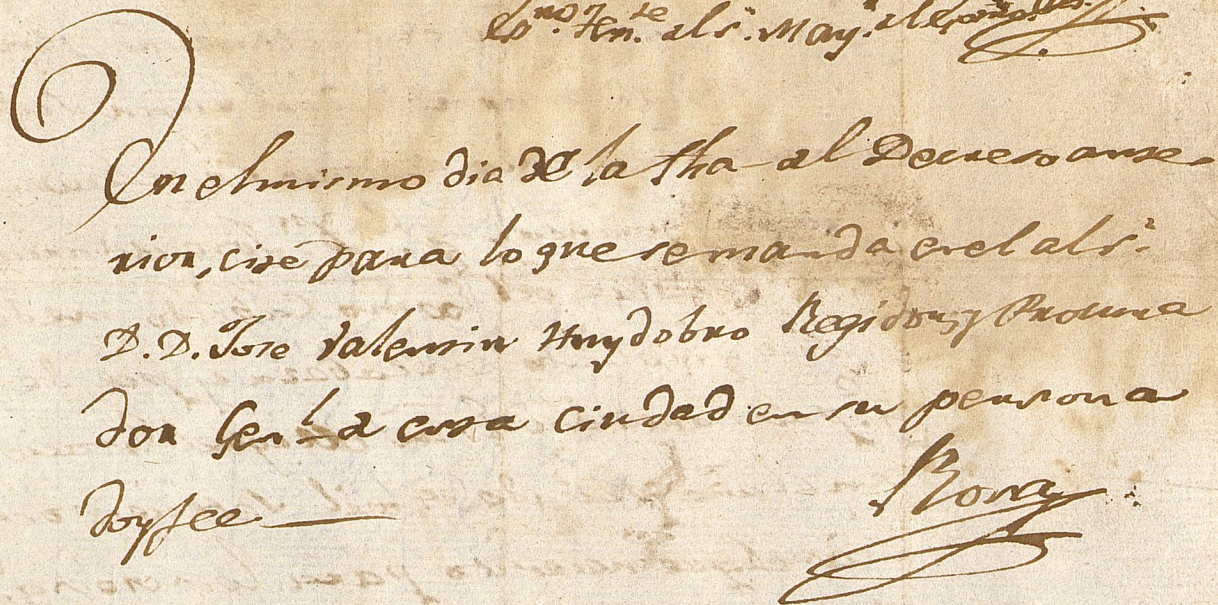 Es.no Ten.te del S.r May.r del
En el mismo dia de la fha del Decreto ante-
rior, cite para lo que se manda en el al S.r
D. D. Jose Valentin Huydobro Regidor, y Procura
dor Gen.l de esta ciudad en su persona
doy fee